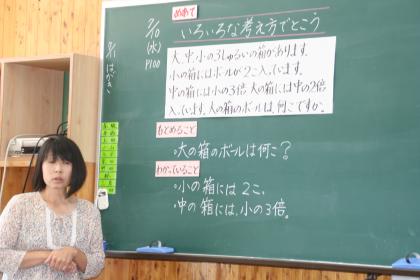 めあて
いろいろな考え方でとこう
9/10
(水)
P100
大、中、小の3しゅるいの箱があります。
小の箱にはボールが2こ入っています。
中の箱には小の3倍、大の箱には中の2倍
入っています。大の箱のボールは、何こですか。
もとめること
・大の箱のボールは何こ?
わかっていること
・小の箱には2こ。
・中の箱には、小の3倍。